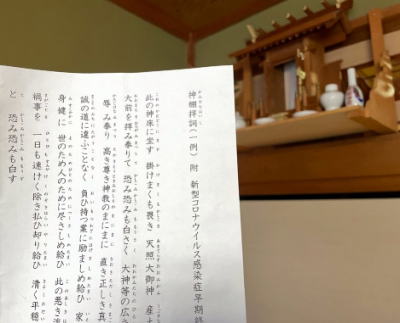 神棚拝詞(一例) 附 新型コロナウイルス感染症早期終
此の神床に坐す 掛けまくも畏き 天照大御神 産土
大前を拝み奉りて 恐み恐みも白さく 大神等の広き
辱み奉り 高き尊き神教のまにまに 直き正しき真
誠の道に違ふことなく 負ひ持つ業に励ましめ給ひ 家
身健に 世のため人のために尽さしめ給ひ 此の悪き
禍事を 一日も速けく除き払ひ却り給ひ 清く平穏
と 恐み恐みも白す